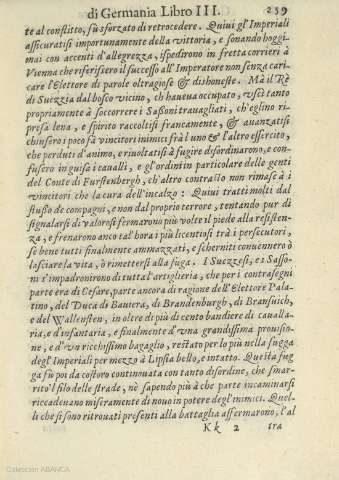 di Germania Libro III. 259
te al conflitto, fù sforzato di retrocedere. Quiui gl'Imperiali
assicuratisi importunamente della vittoria, e sonando hoggi-
mai con accenti d'allegrezza, ispedirono in fretta corrieri à
Vienna che riferissero il successo all'Imperatore non senza cari-
care l'Elettore di parole oltragiose & dishoneste. Mà il Rè
di Suezzia dal bosco vicino, ch'haueua occupato, vscì tanto
propriamente à soccorrere i Sassoni trauagliati, ch'eglino ri-
presa lena, e spirito raccoltisi francamente, & auanzatisi
chiusero i poco fà vincitori inimici frà l'uno & l'altro essercito,
che perduti d'animo, e riuoltatisi à fugire disordinarono, e con-
fusero in guisa i caualli, e gl'ordini in particolare delle genti
del Conte di Furstenbergh, ch'altro contrasto non rimase à i
vincitori che la cura dell'incalzo: Quiui tratti molti dal
flusso de compagni, e non dal proprio terrore, tentando pur di
signalarsi di valorosi fermarono più volte il piede alla resisten-
za, e frenarono ancor tal'hora i più licentiosi trà i persecutori,
se bene tutti finalmente ammazzati, e scherniti conuennero ò
lasciare la vita, ò rimettersi alla fuga. I Suezzesi, e i Sasso-
ni s'impadronirono di tutta l'artiglieria, che per i contrasegni
parte era di Cesare, parte ancora di ragione dell'Elettore Pala-
tino, del Duca di Bauiera, di Brandenburgh, di Bransuich,
e del Wallenstein, in oltre di più di cento bandiere di caualla-
ria, e d'infantaria, e finalmente d'vna grandissima prouisio-
ne, e d'vn ricchissimo bagaglio, restato per lo più nella fugga
degl'Imperiali per mezzo à Lipsia bello, e intatto. Questa fuga
ga fù poi da costoro continouata con tanto disordine, che smar-
rito'l filo delle strade, nè sapendo più à che parte incaminarsi
riccadeuano miseramente di nouo in potere degl'inimici. Quel-
li che si sono ritrouati presenti alla battaglia affermarono, l'al
Kk 2 tra
Colección ABANCA